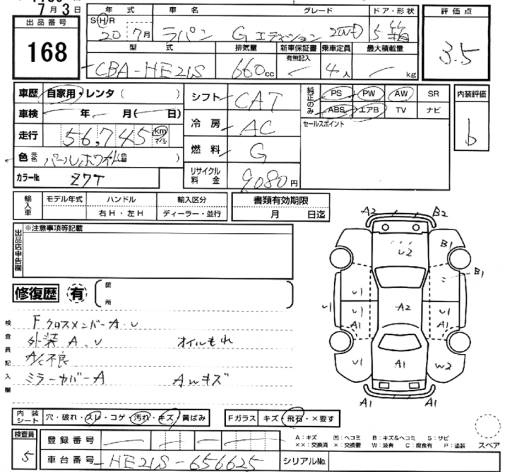 月 3 日
出品番号
168
年式 車名 グレード ドア・形状 評価点
S H R
20年7月 ラパン G エディション 2WD 5
3.5
型式 排気量 新車保証書 乗車定員 最大積載量
有無記入
CBA-HE21S 660cc 4人 kg
車歴 自家用・レンタ( )
車検 年 月( 日)
走行 56,745 km マイル
色 元色 パールホワイト 色 ( )
カラーNo. Z7T
シフト CAT
冷房 AC
燃料 G
リサイクル料金 9080円
純正のみ PS PW AW SR
ABS エアB TV ナビ
セールスポイント
内装評価
b
輸入車 モデル年式 ハンドル 輸入区分
右H・左H ディーラー・並行
書類有効期限
月 日迄
出品店申告欄 ※注意事項等記載
修復歴 有 箇所
検査員記入欄
FクロスメンバーA、U
外装A、U オイルもれ
A/C不良
ミラーカバーA AWキズ
A2 B2
U2 B1
U1 U1 B1
U1 A2
U1 A1
A1 A1 W2
A1 A1
内装シート 穴・破れ・スレ・コゲ・汚れ・キズ・黄ばみ
Fガラス キズ・飛石・×要す
検査員 5
登録番号
車台番号 HE21S-656625 シリアルNo.
A:キズ U:ヘコミ B:キズ&ヘコミ S:サビ
××:交換済 ×:交換要 W:波有 C:腐食有 P:塗装
スペア